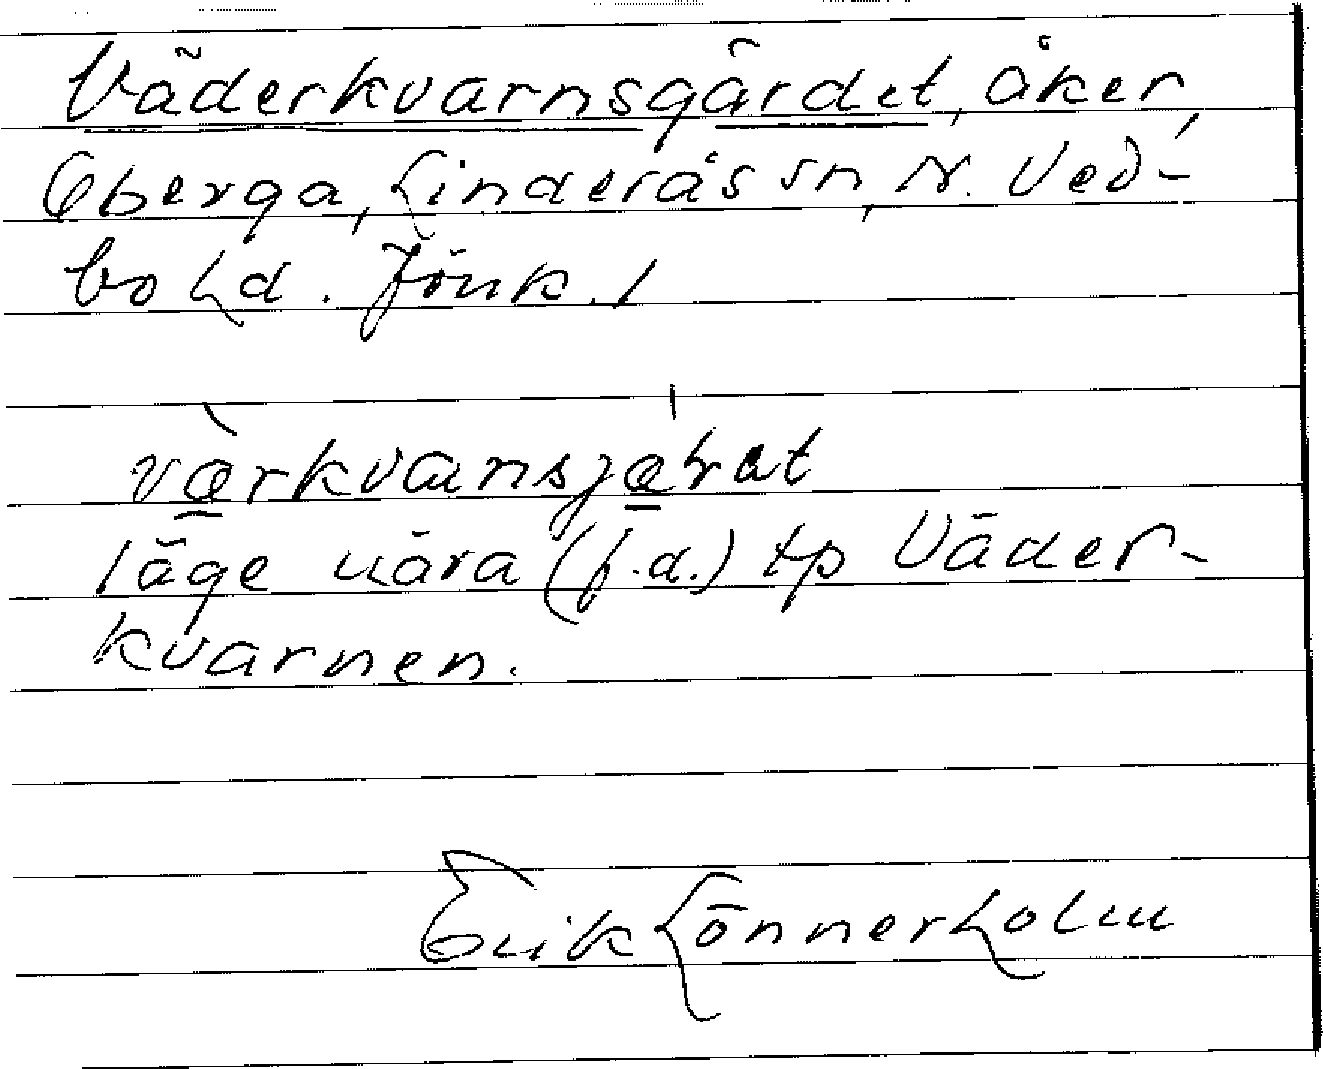 Väderkvarnsgärdet, åker,
Öberga, Linderås sn, N. Ved-
bo hd. Jönk. l
läge nära (f.d.) tp Väder-
kvarnen.
Erik Lönnerholm